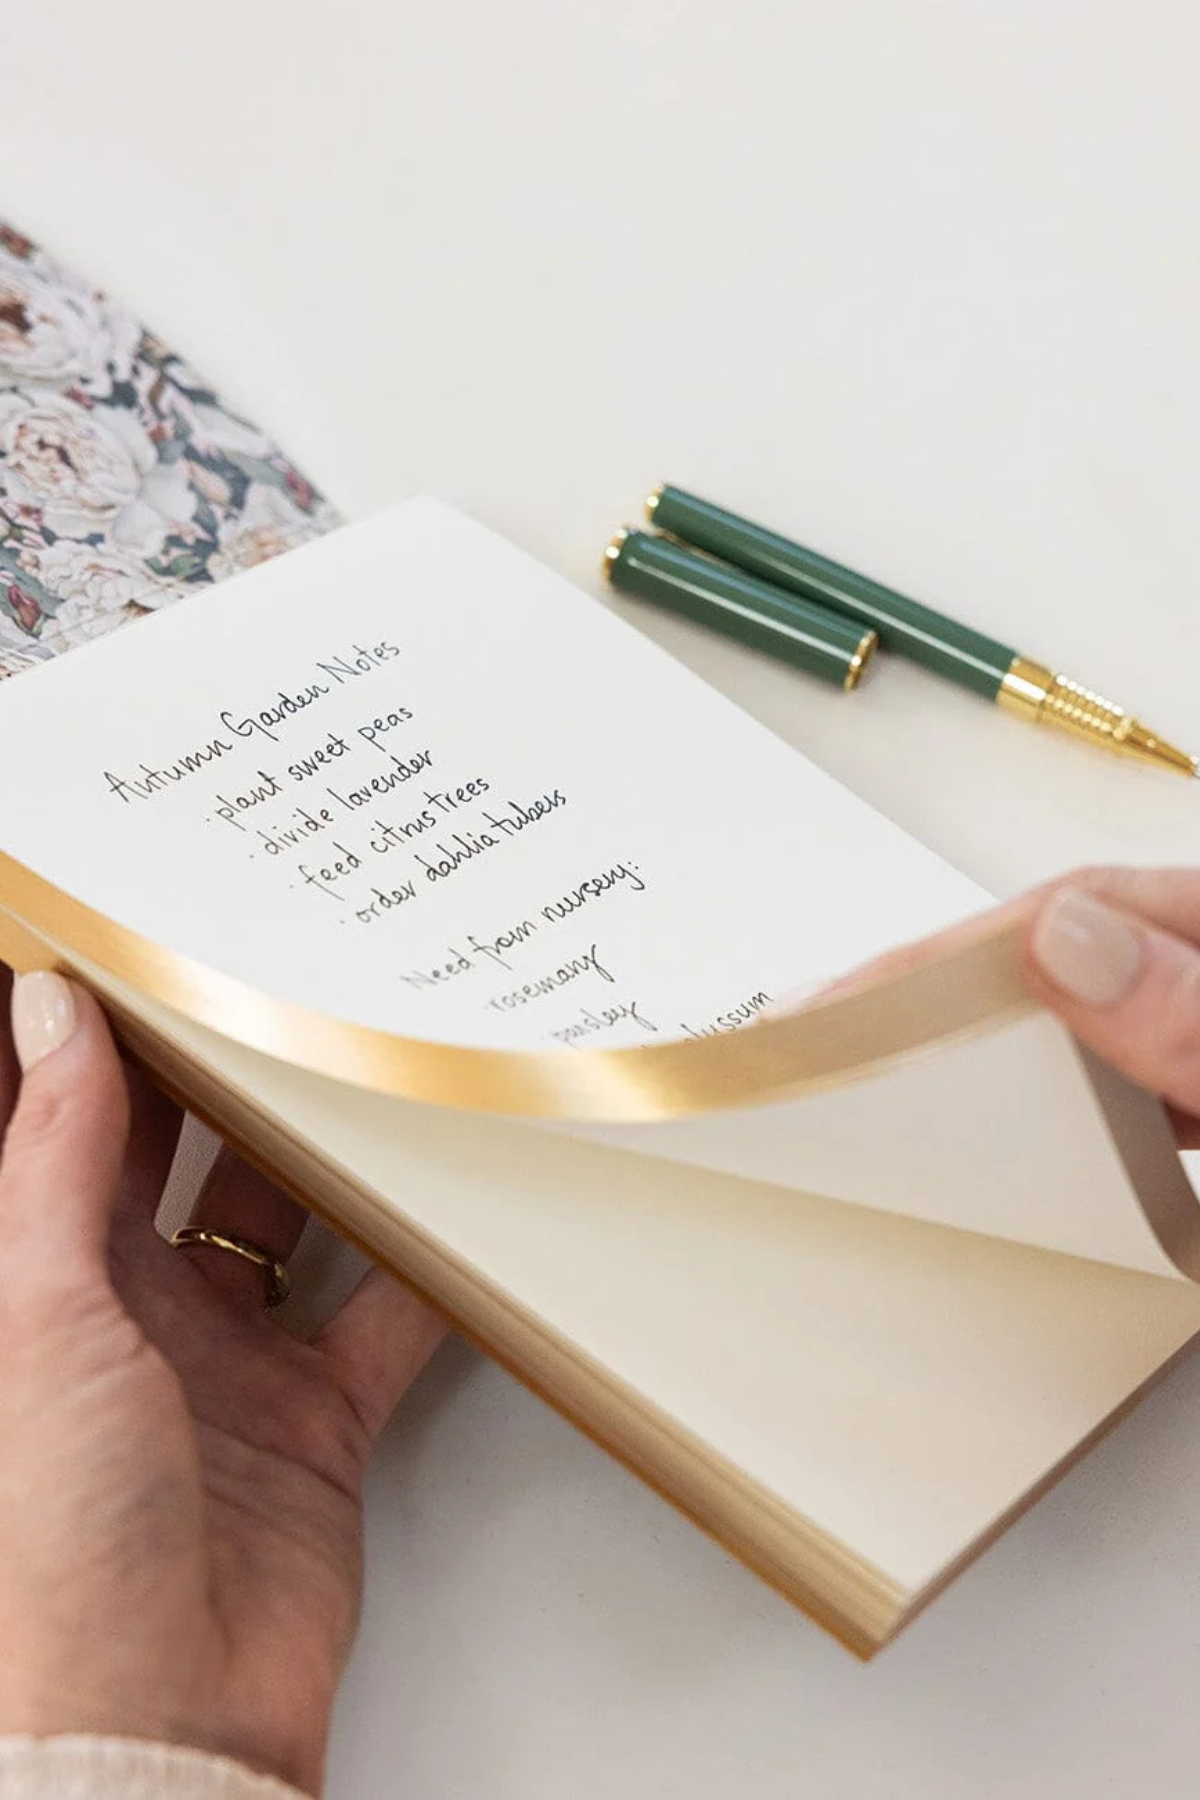 Autumn Garden Notes
· plant sweet peas
· divide lavender
· feed citrus trees
· order dahlia tubers
Need from nursery:
· rosemary
· parsley